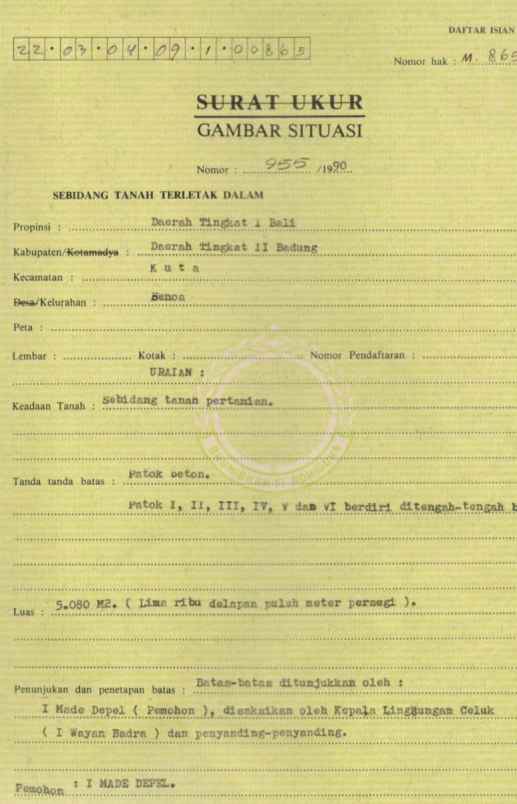 DAFTAR ISIAN
22.03.04.09.1.00865
Nomor hak : M. 865
SURAT UKUR
GAMBAR SITUASI
Nomor : 955 /1990.
SEBIDANG TANAH TERLETAK DALAM
Propinsi : Daerah Tingkat I Bali
Kabupaten/Kotamadya : Daerah Tingkat II Badung
Kecamatan : K u t a
Desa/Kelurahan : Benoa
Peta :
Lembar : Kotak : Nomor Pendaftaran :
URAIAN :
Keadaan Tanah : Sebidang tanah pertanian.
Tanda tanda batas : Patok beton.
Patok I, II, III, IV, V dan VI berdiri ditengah-tengah b
Luas : 5.080 M2. ( Lima ribu delapan puluh meter persegi ).
Penunjukan dan penetapan batas : Batas-batas ditunjukkan oleh :
I Made Depel ( Pemohon ), disaksikan oleh Kepala Lingkungan Celuk
( I Wayan Badra ) dan penyanding-penyanding.
Pemohon : I MADE DEPEL.